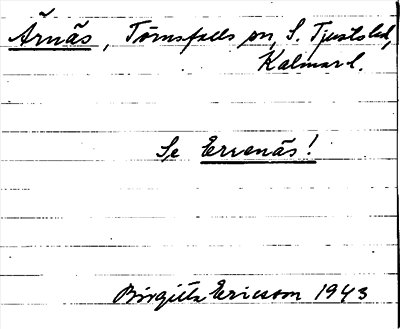 Ärnäs, Törnsfalls sn, S. Tjusts hd,
Kalmar l.
Se Ervenäs!
Birgitta Ericsson 1943